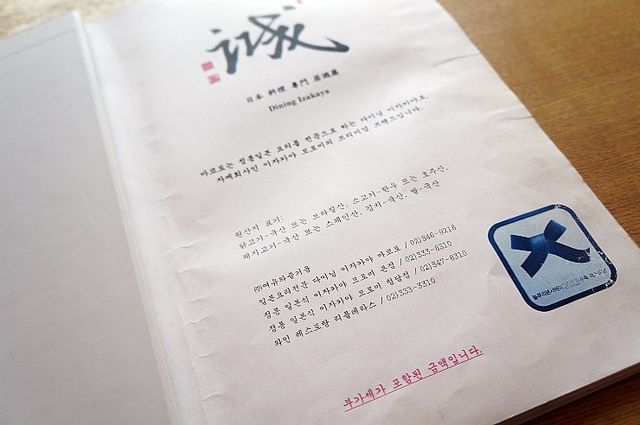 誠
日本 料理 專門 居酒屋
Dining Izakaya
마코토는 정통일본 요리를 전문으로 하는 다이닝 이자카야로,
자매회사인 이자카야 모로미의 프리미엄 브랜드입니다.
원산지 표기:
닭고기-국산 또는 브라질산, 소고기-한우 또는 호주산,
돼지고기-국산 또는 스페인산, 김치-국산, 쌀-국산
㈜여유와즐거움
일본요리전문 다이닝 이자카야 마코토 / 02)546-9216
정통 일본식 이자카야 모로미 본점 / 02)333-6310
정통 일본식 이자카야 모로미 청담점 / 02)547-6310
와인 레스토랑 리틀테라스 / 02)333-3310
부가세가 포함된 금액입니다.